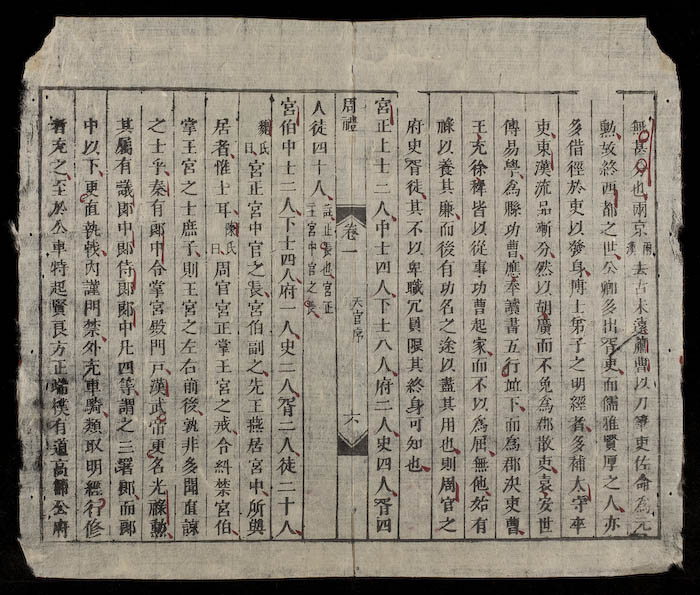 無甚分也兩京兩漢去古未遠蕭曹以刀筆吏佐命為元
勳故終西都之世公卿多出胥吏而儒雅賢厚之人亦
多借徑於吏以發身博士弟子之明經者多補太守卒
史東漢流品漸分然以胡廣而不免為郡散吏袁安世
傳易學為縣功曹應奉讀書五行並下而為郡決吏曹
王充徐穉皆以從事功曹起家而不以為屈無他始有
祿以養其廉而後有功名之途以盡其用也則周官之
府史胥徒其不以卑職冗員限其終身可知也
宮正上士二人中士四人下士八人府二人史四人胥四
周禮 卷一 天官序 六
人徒四十人註正長也宮正主宮中官之長
宮伯中士二人下士四人府一人史二人胥二人徒二十人
魏氏曰宮正宮中官之長宮伯副之先王燕居宮中所與
居者惟士耳陳氏曰周官宮正掌王宮之戒令糾禁宮伯
掌王宮之士庶子則王宮之左右前後孰非多聞直諒
之士乎秦有郎中令掌宮殿門戸漢武帝更名光祿勳
其屬有議郎中郎侍郎郎中凡四等謂之三署郎而郎
中以下更直執戟內謹門禁外充車騎類取明經行修
者充之至於公車特起賢良方正端樸有道高節公府